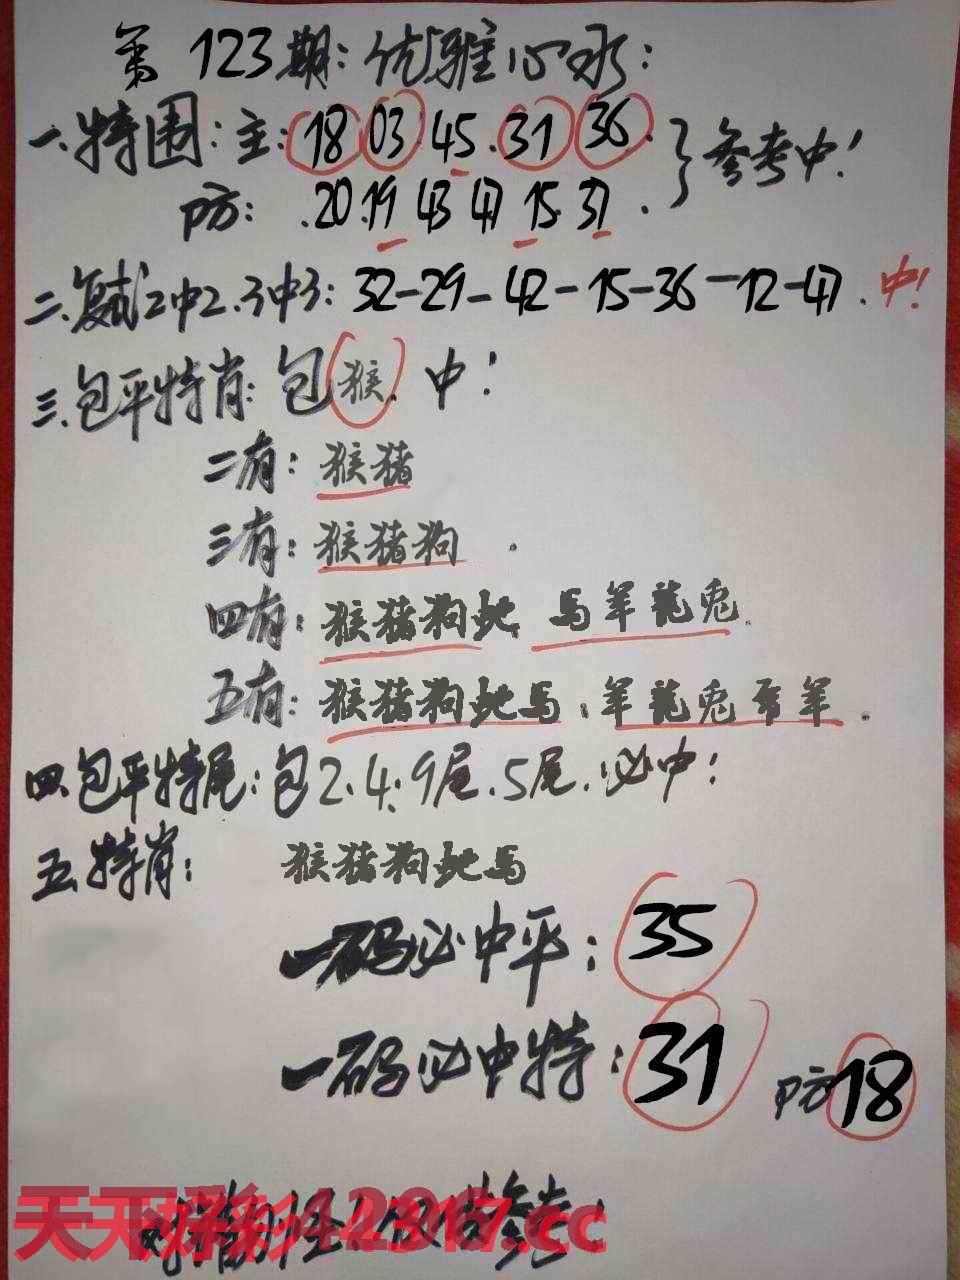 第123期:优雅心水:
一.特围:主:18 03 45.31 36.}参考中!
防:.20.19 43 47 15.37.
二.复试2中2.3中3:32-29-42-15-36-12-47.中!
三.包平特肖:包猴.中!
二有:猴猪
三有:猴猪狗.
四有:猴猪狗蛇.马羊龍兎.
五有:猴猪狗蛇马.羊龍兎 羊.
四.包平特尾:包2.4.9尾.5尾.必中!
五.特肖:猴猪狗蛇马
一码必中平:35
一码必中特:31 防18
天下彩 .cc